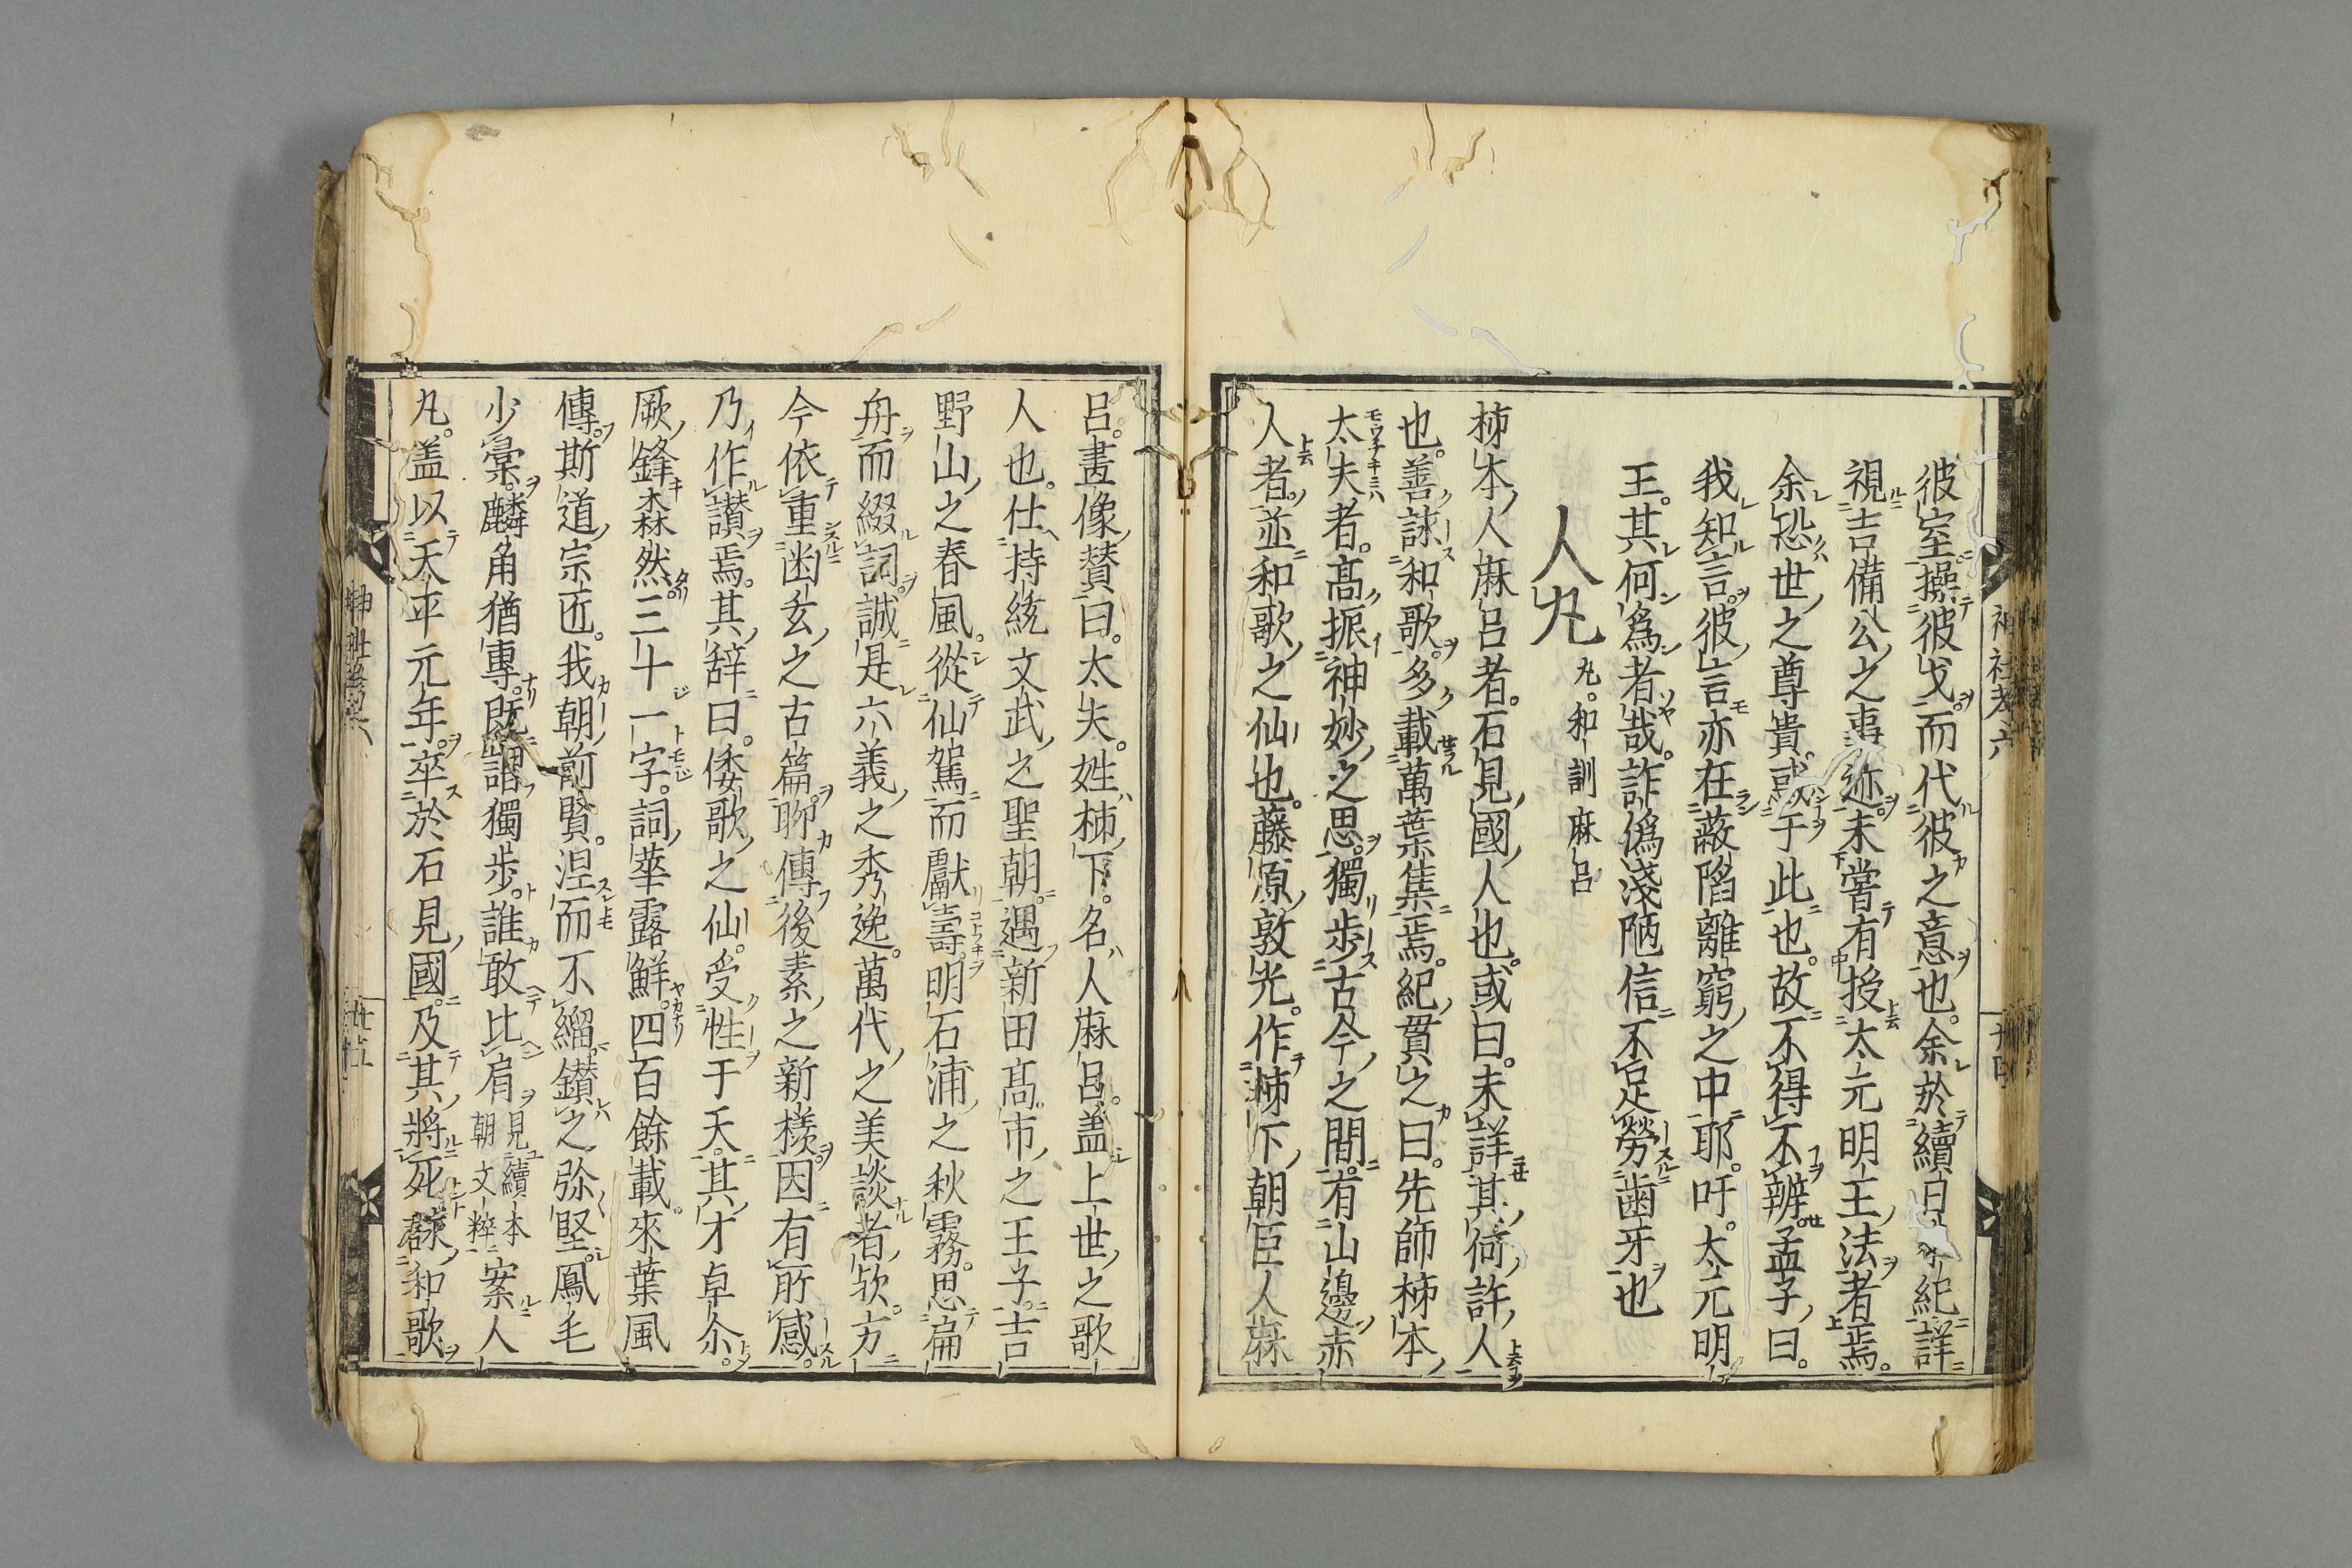 彼室操彼戈而代彼之意也。余於續日本紀詳
視吉備公之事迹。未嘗有授太元明王法者焉。
余恐世之尊貴。或于此也。故不得不辨。孟子曰。
我知言。彼言亦在蔽陷離窮之中耶。吁。太元明
王。其何為者哉。詐偽淺陋信不足勞齒牙也
人丸 丸。和訓麻呂
柿本人麻呂者。石見國人也。或曰。未詳其何許人
也。善詠和歌。多載萬葉集焉。紀貫之曰。先師柿本
太夫者。高振神妙之思。獨步古今之間。有山邊赤
人者。並和歌之仙也。藤原敦光。作柿下朝臣人麻
呂。畫像贊曰。太夫。姓柿下。名人麻呂。蓋上世之歌
人也。仕持統文武之聖朝。遇新田高市之王子。吉
野山之春風。從仙駕而獻壽。明石浦之秋霧。思扁
舟而綴詞。誠是六義之秀逸。萬代之美談者欤。方
今依重幽玄之古篇。聊傳後素之新樣。因有所感。
乃作讃焉。其辞曰。倭歌之仙。受性于天。其才卓尒。
厥鋒森然。三十一字。詞華露鮮。四百餘載。來葉風
傳。斯道宗匠。我朝前賢。涅而不緇。鑚之弥堅。鳳毛
少彙。麟角猶專。既謂獨步。誰敢比肩 見續本朝文粹 案人
丸。盖以天平元年。卒於石見國。及其將死。詠和歌
神社考六
廿四
神社考六
廿五